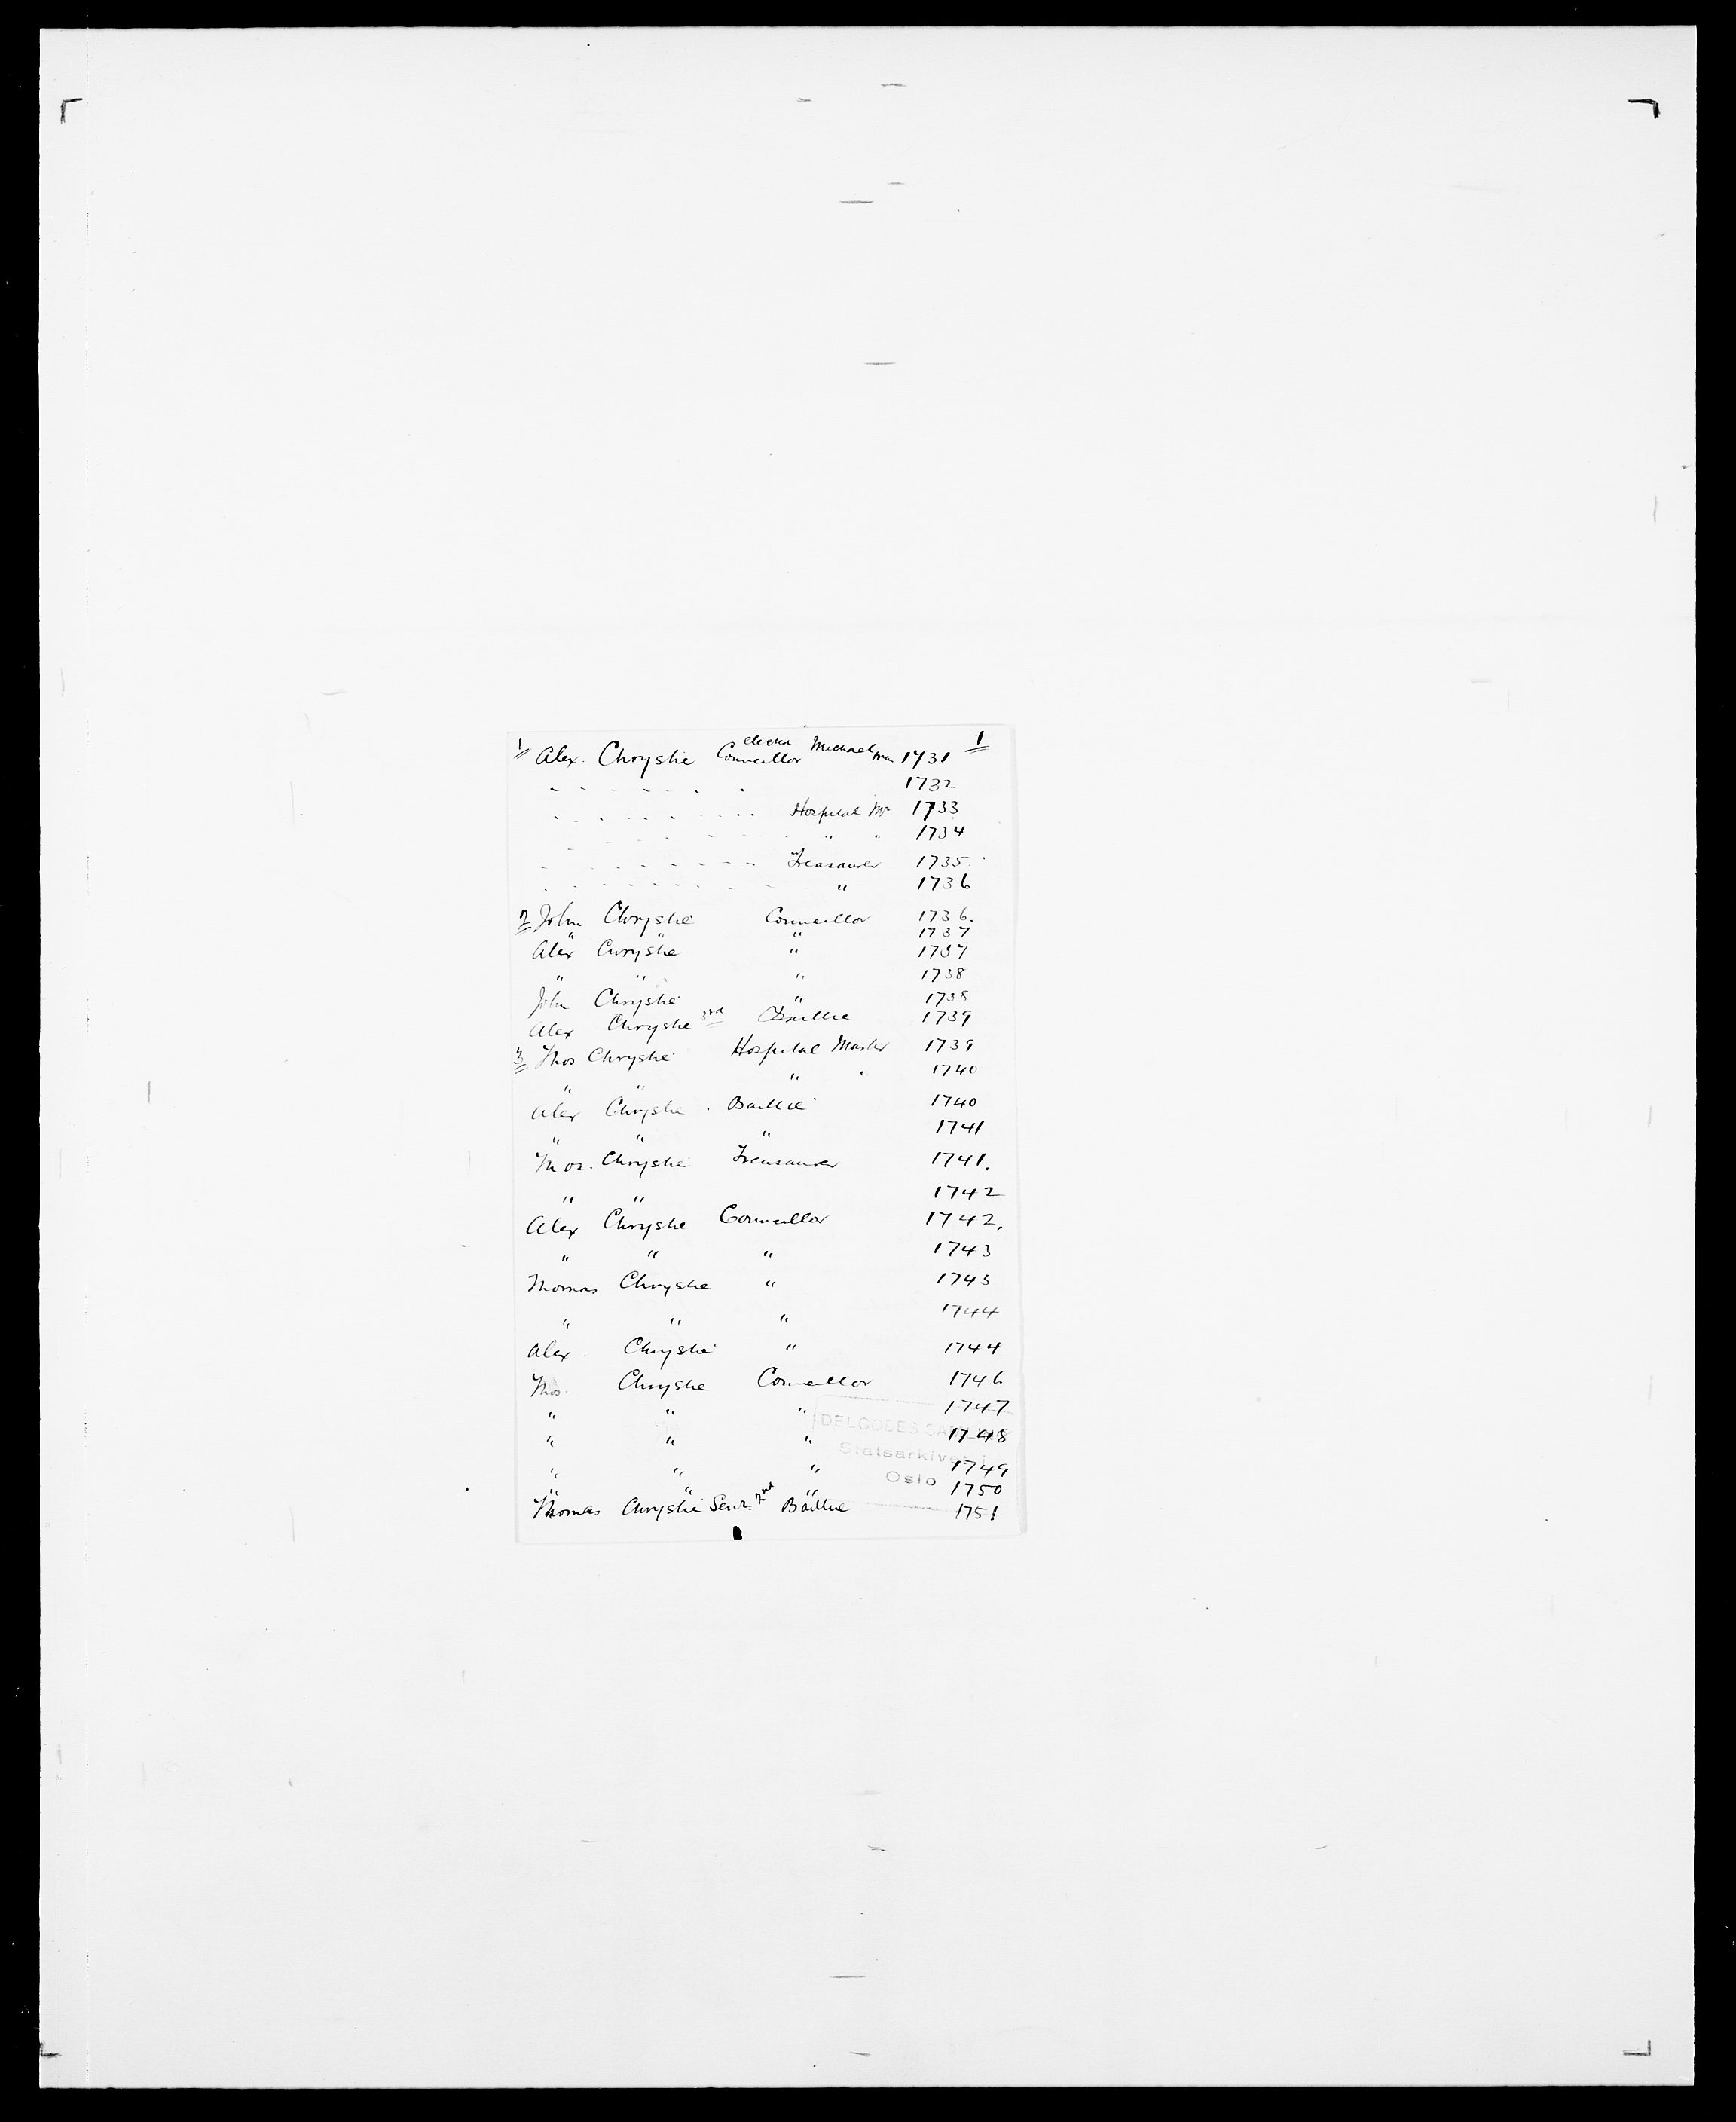 1
1 Alex. Chrystie elected Councillor Michaelmas 1731
- - - - - - - 1732
. . . . . . . . . . Hospital Mr 1733
- - - - - - " " 1734
- - - - - - - - - Treasaurer 1735.
. . . . . . . . " 1736
2 John Chrystie Councillor 1736.
" " " 1737
Alex Chrystie " 1737
" " " 1738
John Chrystie " 1738
Alex Chrystie 3rd Baillie 1739
3 Thos Chrystie Hospital Master 1739
" " " " 1740
Alex Chrystie . Baillie 1740
" " " 1741
Thos. Chrystie Treasaurer 1741.
" " 1742
Alex Chrystie Councillor 1742.
" " " 1743
Thomas Chrystie " 1743
" " " 1744
Alex. Chrystie " 1744
Thos. Chrystie Councillor 1746
" " " 1747
" " " 1748
" " " 1749
" " " 1750
Thomas Chrystie Senr. 2nd Baillie 1751
DELGOBES SAMLING
Statsarkivet i
Oslo